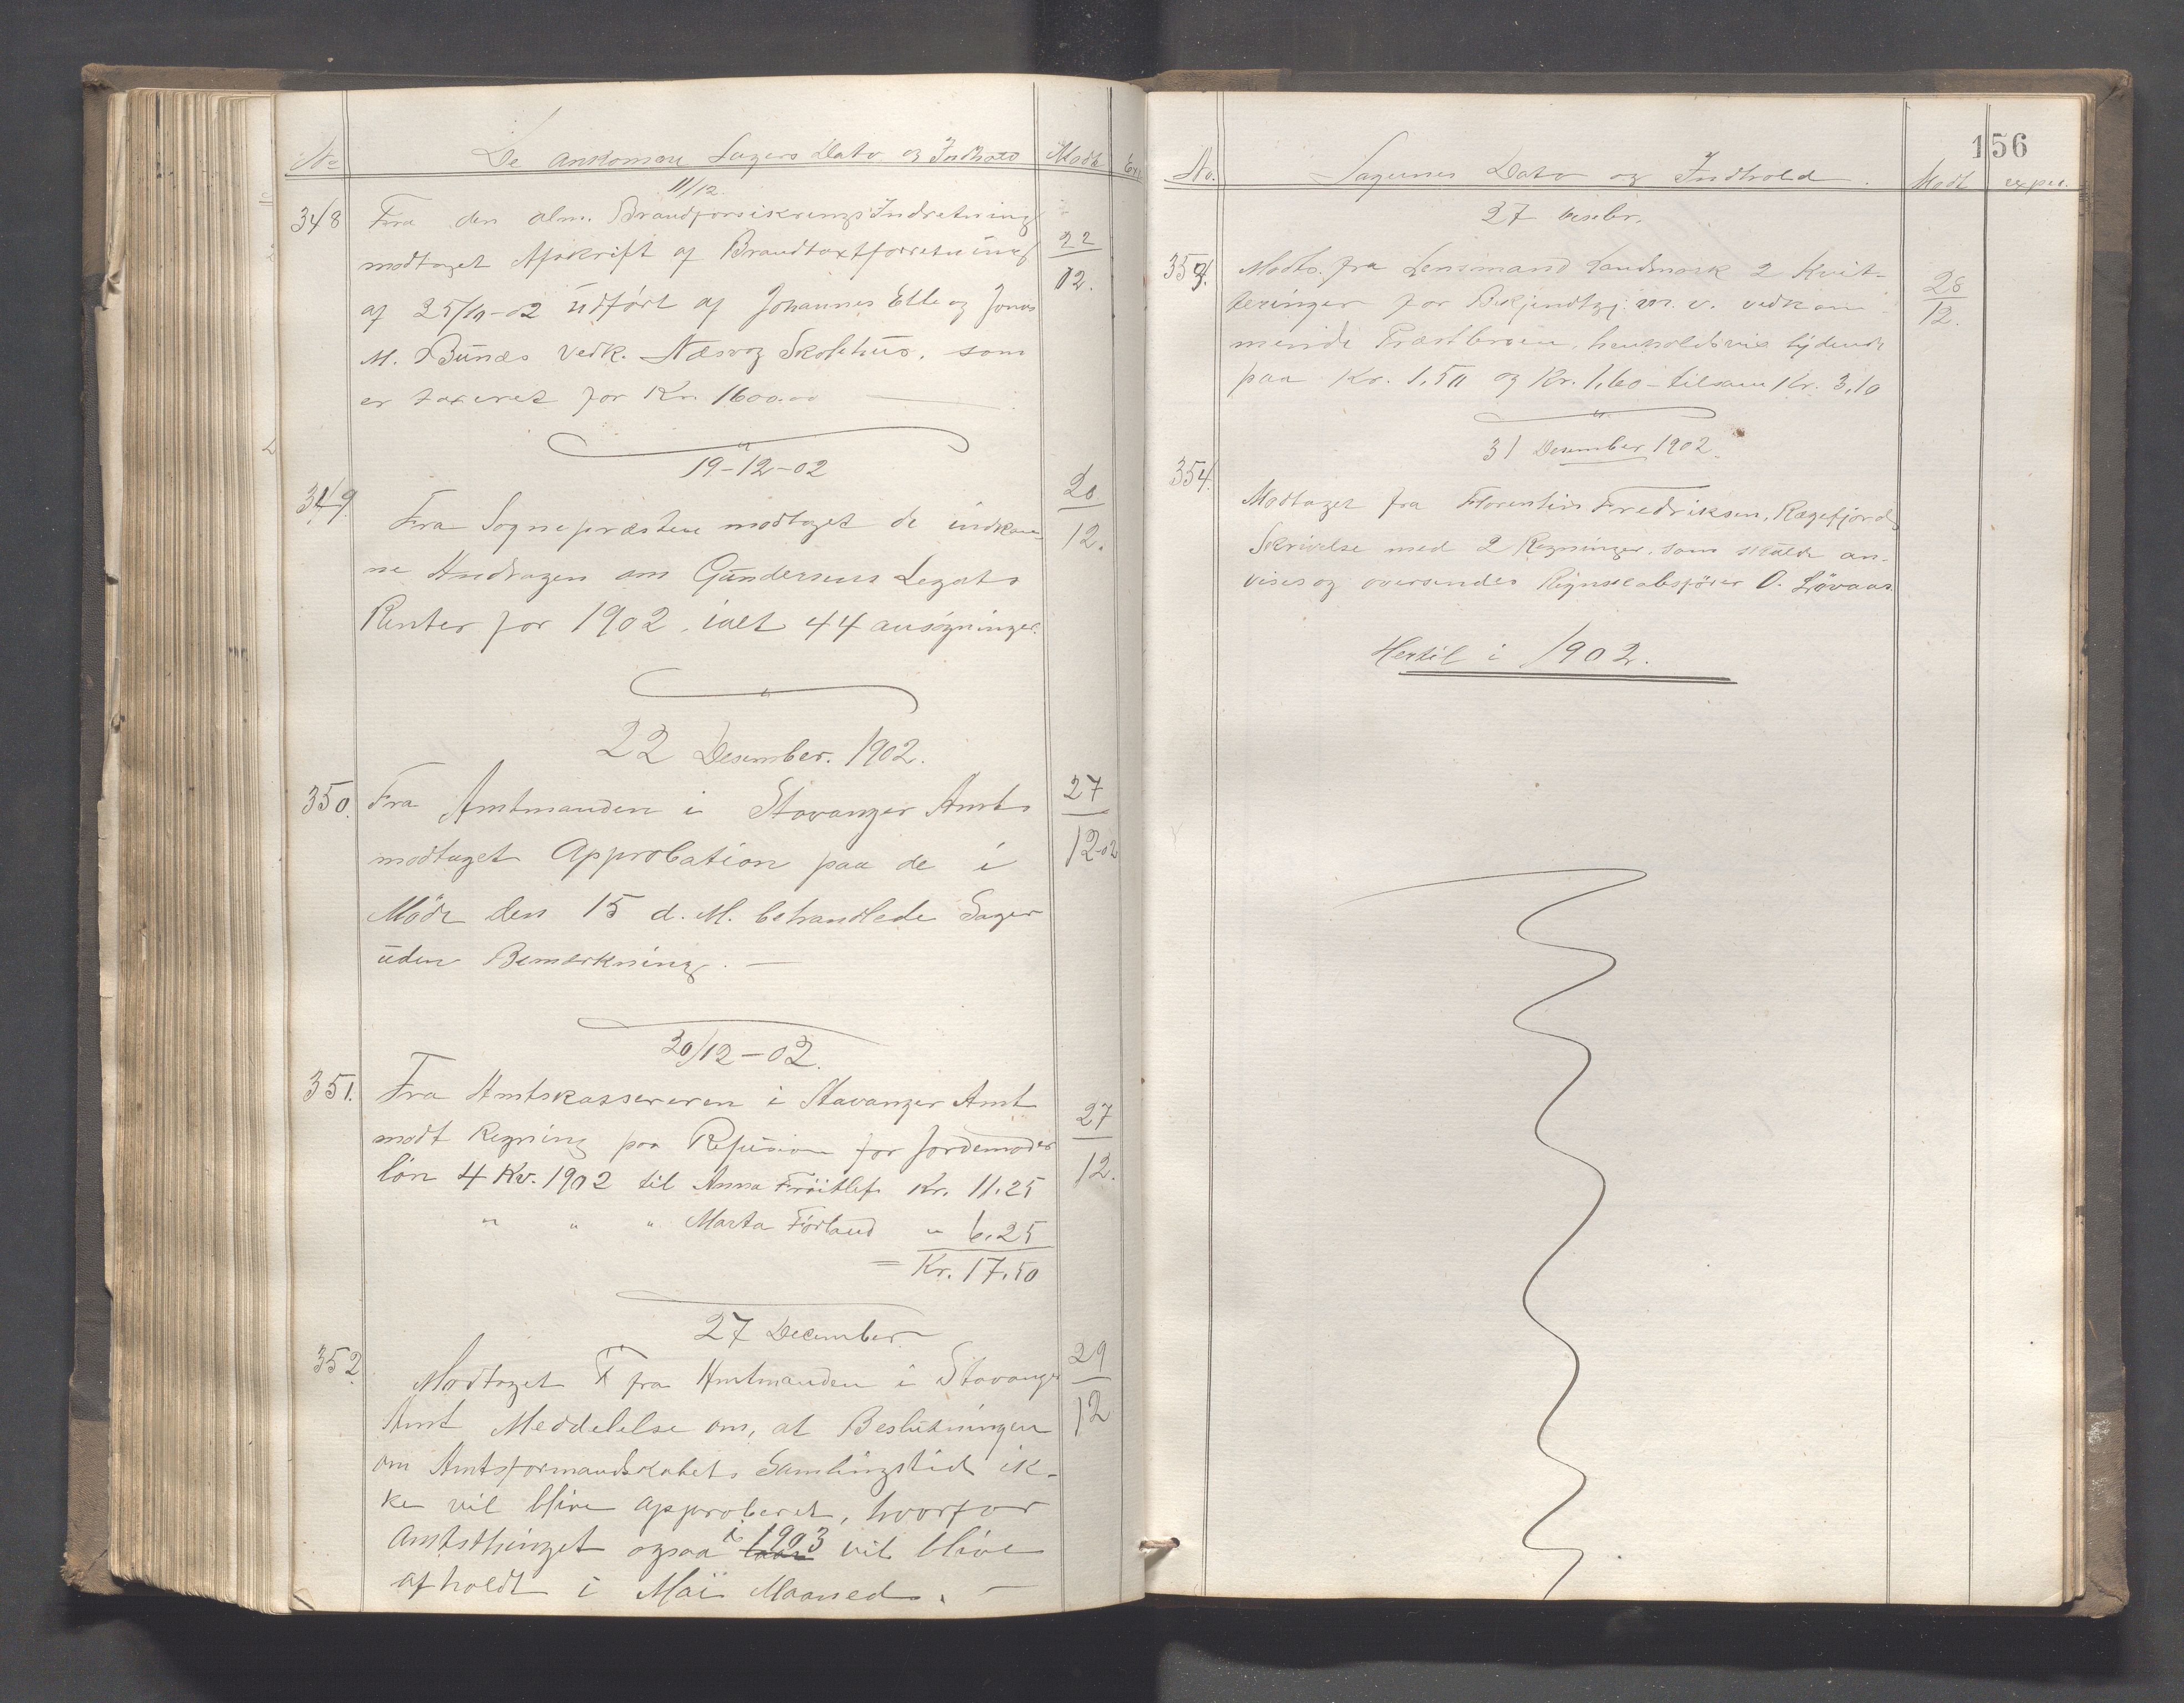 No De ankomne Sagers Dato og Indhold Modt Exp
11/12.
348 Fra den alm. Brandforsikrings Indretning
modtaget Afskrift af Brandtaxtforretning 22/12.
af 25/11-02 udført af Johannes Elle og Jonas
M. Bunæs vedk. Næsvog Skolehus, som
er taxeret for Kr. 1600.00
19-12-02
349 Fra Sognepræsten modtaget de indkom 20/12.
ne Andragen om Gundersens Legats
Renter for 1902, ialt 44 ansøgninger.
22 Desember. 1902.
350. Fra Amtmanden i Stavanger Amt 27/12-02
modtaget Approbation paa de i
Möde den 15 d. M. behandlede Sager
uden Bemerkning. —
20/12-02.
351. Fra Amtskassereren i Stavanger Amt 27/12.
modt Regning paa Refusion for Jordemoder
lön 4 Kv. 1902 til Anna Fröitlef. Kr. 11.25
" " " Marta Förland " 6.25
= Kr. 17.50
27 December
352. Modtaget fra Amtmanden i Stavanger 29/12
Amt Meddelelse om, at Beslutningen
om Amtsformandskabets Samlingstid ik-
ke vil blive approberet, hvorfor
Amtsthinget ogsaa i 1903 vil blive
afholdt i Mai Maaned. —
156
No. Sagernes Dato og Indhold. Modt exped.
27 Deseber.
353. Modt. fra Lensmand Landmark 2 Kvit- 28/12.
teringer for Bekjendtgj. m. v. vedkom
mende Præstbroen, henholdsvis lydende
paa Kr. 1,50 og Kr. 1,60 – tilsam Kr. 3,10
31 Desember 1902.
354. Modtaget fra Florentin Fredriksen, Rægefjord
Skrivelse med 2 Regninger, som skulde an-
vises og oversendes Regnskabsfører O. Lövaas.
Hertil i 1902.